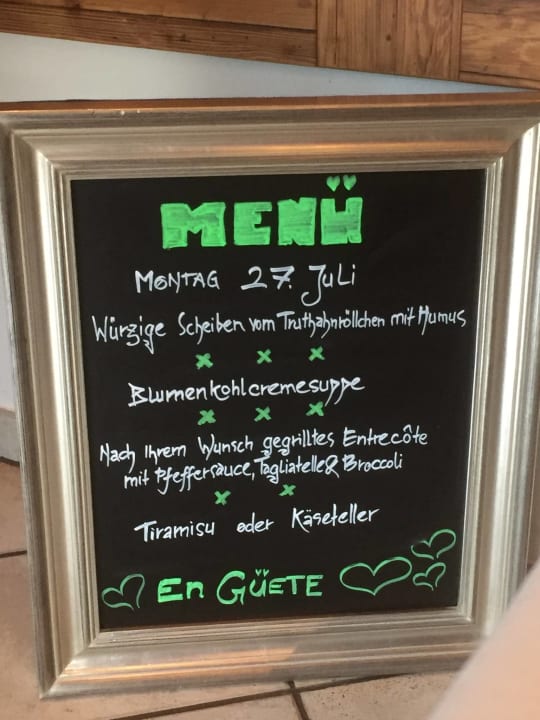 MENÜ
MONTAG 27. Juli
Würzige Scheiben vom Truthahnröllchen mit Humus
x x x
Blumenkohlcremesuppe
x x x
Nach Ihrem Wunsch gegrilltes Entrecôte
mit Pfeffersauce, Tagliatelle & Broccoli
x x
Tiramisu oder Käseteller
En GÜETE